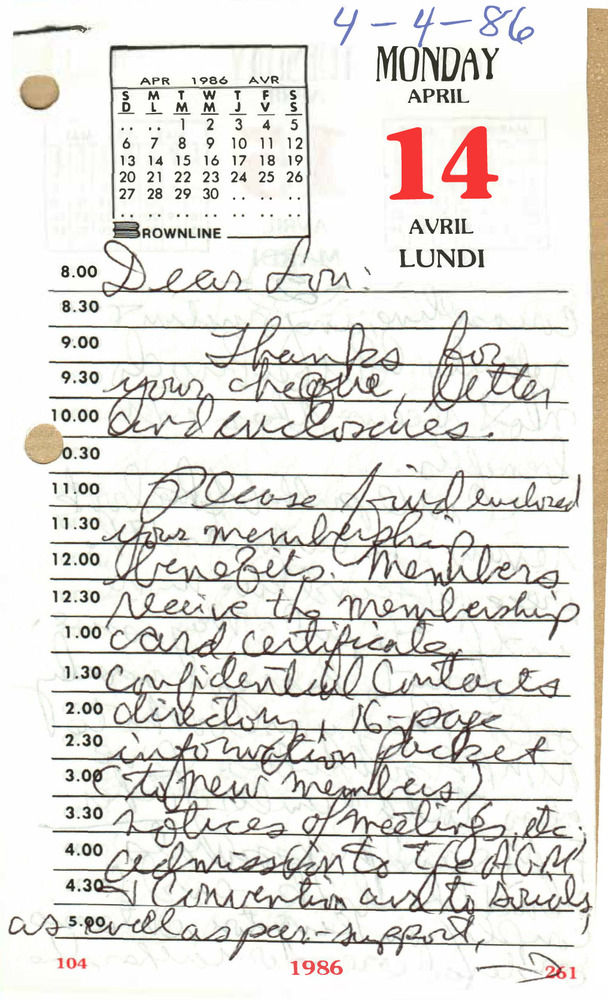 4-4-86
MONDAY
APRIL
14
AVRIL
LUNDI
APR 1986 AVR
S M T W T F S
D L M M J V S
.. .. 1 2 3 4 5
6 7 8 9 10 11 12
13 14 15 16 17 18 19
20 21 22 23 24 25 26
27 28 29 30 .. .. ..
.. .. .. .. .. .. ..
BROWNLINE
8.00 Dear Lou:
8.30
9.00 Thanks for
9.30 your cheque, letter
10.00 and enclosures.
0.30
11.00 Please find enclosed
11.30 your membership
12.00 benefits. Members
12.30 receive the membership
1.00 card, certificate,
1.30 confidential Contacts
2.00 directory, 16-page
2.30 information packet
3.00 (to new members)
3.30 notices of meetings, etc.
4.00 admission to the AGM
4.30 & Convention and to socials,
5.00 as well as peer-support,
104 1986 261